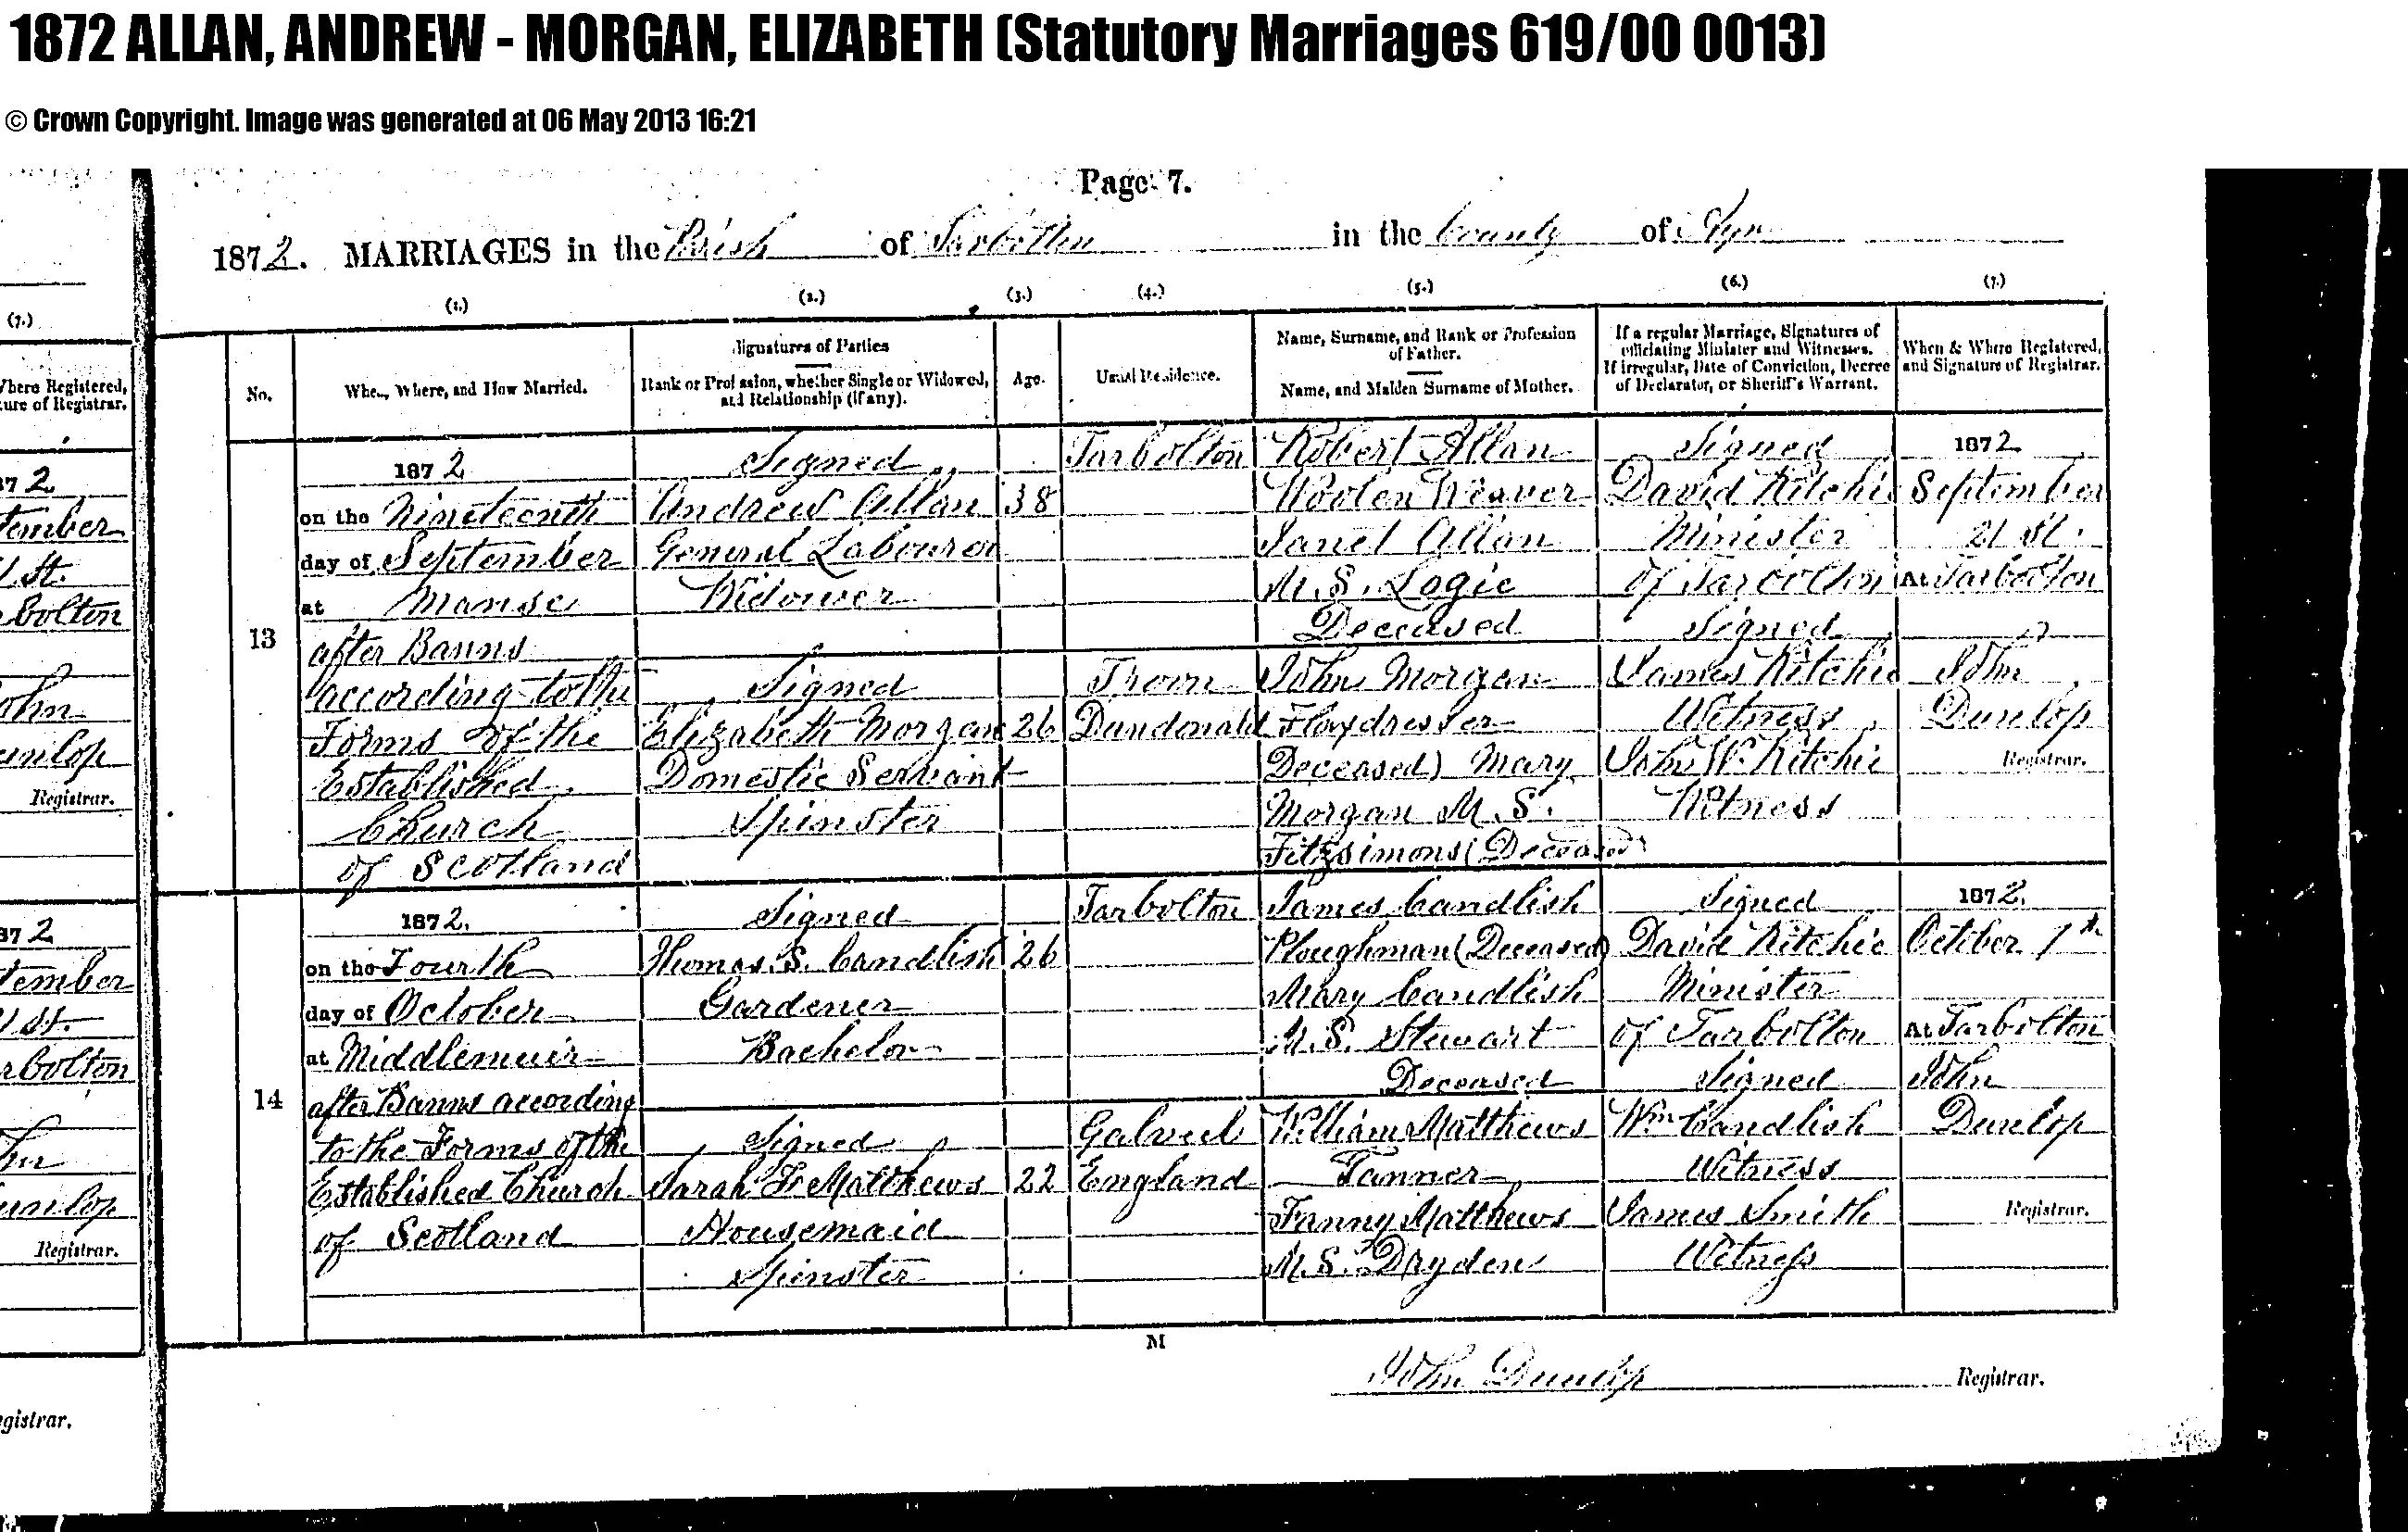 1872 ALLAN, ANDREW - MORGAN, ELIZABETH (Statutory Marriages 619/00 0013)
© Crown Copyright. Image was generated at 06 May 2013 16:21
Page 7.
1872. MARRIAGES in the Parish of Tarbolton in the County of Ayr
(1.) (2.) (3.) (4.) (5.) (6.) (7.)
No.
When, Where, and How Married.
Signatures of Parties
Rank or Profession, whether Single or Widowed,
and Relationship (if any).
Age.
Usual Residence.
Name, Surname, and Rank or Profession
of Father.
Name, and Maiden Surname of Mother.
If a regular Marriage, Signatures of
officiating Minister and Witnesses.
If irregular, Date of Conviction, Decree
of Declarator, or Sheriff's Warrant.
When & Where Registered,
and Signature of Registrar.
13
1872
on the Nineteenth
day of September
at Manse
after Banns
according to the
Forms of the
Established
Church
of Scotland
Signed
Andrew Allan
General Labourer
Widower
Signed
Elizabeth Morgan
Domestic Servant
Spinster
38
26
Tarbolton
Troon
Dundonald
Robert Allan
Woolen Weaver
Janet Allan
M.S. Logie
Deceased
John Morgan
Flaxdresser
Deceased) Mary
Morgan M.S.
Fitzsimons (Deceased)
Signed
David Ritchie
Minister
of Tarbolton
Signed
James Ritchie
Witness
John W. Ritchie
Witness
1872
September
21 st.
At Tarbolton
John
Dunlop
Registrar.
14
1872.
on the Fourth
day of October
at Middlemuir
after Banns according
to the Forms of the
Established Church
of Scotland
Signed
Thomas S. Candlish
Gardener
Bachelor
Signed
Sarah F. Matthews
Housemaid
Spinster
26
22
Tarbolton
England
James Candlish
Ploughman (Deceased)
Mary Candlish
M.S. Stewart
Deceased
William Matthews
Tanner
Fanny Matthews
M.S. Dryden
Signed
David Ritchie
Minister
of Tarbolton
Signed
Wm Candlish
Witness
James Smith
Witness
1872.
October
At Tarbolton
John
Dunlop
Registrar.
M
John Dunlop Registrar.